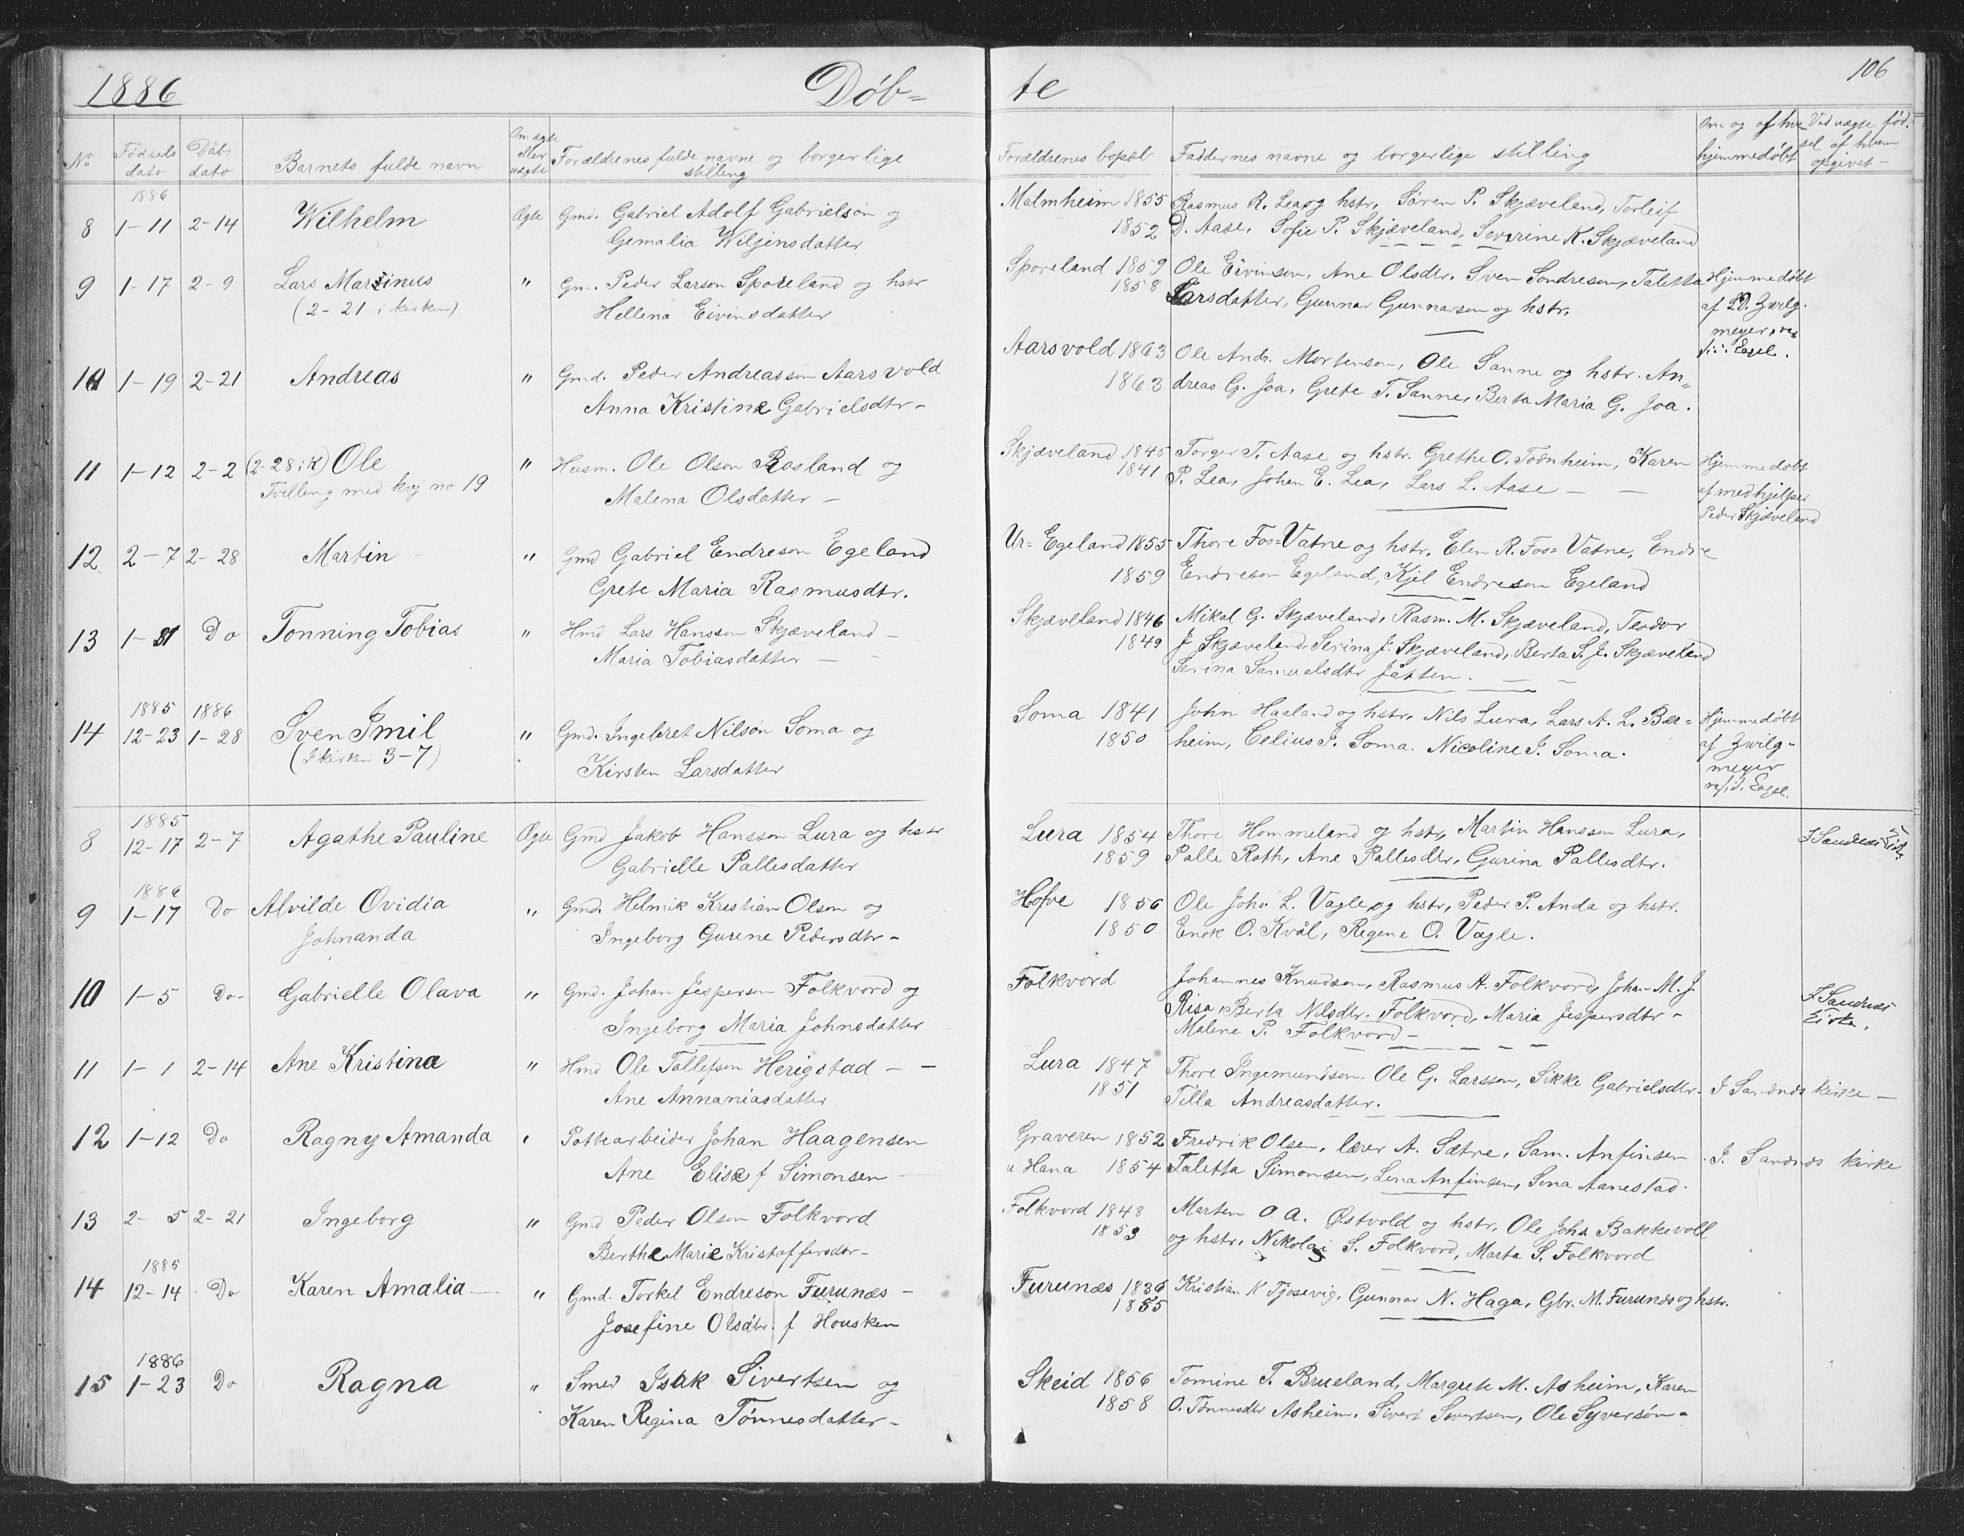 1886 Döb- te 106
No Födsels dato Dåbs dato Barnets fulde navn Om ægte eller uægte Forældrenes fulde navne og borgerlige stilling Forældrenes bopæl Faddernes navne og borgerlige stilling Om og af hvem hjemmedöbt Ved uægte föd-
1886
8 1-11 2-14 Wilhelm Ægte Gmd. Gabriel Adolf Gabrielsön og Malmheim 1855 Rasmus R. Lea og hstr, Sören P. Skjæveland, Torleif
Gemalia Wiljensdatter 1852 D. Aase, Sofie P. Skjæveland, Severine K. Skjæveland
9 1-17 2-9 Lars Martinus " Gm. Peder Larson Sporeland og hstr Sporeland 1859 Ole Eivinson, Ane Olsdtr. Sven Sondreson, Taletta Hjemmedöbt
(2-21 i kirken) Hellena Eivinsdatter 1858 Larsdatter, Gunnar Gunnarson og hstr. af D. Zwilg-
meyer
10 1-19 2-21 Andreas " Gmd. Peder Andreassen Aarsvold Aarsvold 1863 Ole Andr. Mortenson, Ole Sanne og hstr. An-
Anna Kristine Gabrielsdtr- 1863 dreas G. Joa, Grete T. Sanne, Berta Maria G. Joa.
11 1-12 2-2 (2-28 i K) Ole " Husm. Ole Olson Rosland og Skjæveland 1845 Torger T. Aase og hstr. Grethe O. Todnheim, Karen Hjemmedöbt
Tvilling med kvj no 19 Malena Olsdatter - 1841 P. Lea, Johan E. Lea, Lars L. Aase - - af medhjelper
Peder Skjæveland
12 2-7 2-28 Martin " Gmd Gabriel Endreson Egeland Ur-Egeland 1855 Thore Fos-Vatne og hstr, Elen R. Fos-Vatne, Endre
Grete Maria Rasmusdtr. 1859 Endreson Egeland, Kjel Endreson Egeland
13 1-31 Do Tonning Tobias " Hmd Lars Hansson Skjæveland - Skjæveland 1846 Mikal G. Skjæveland, Rasm. M. Skjæveland, Teodor
Maria Tobiasdatter - 1849 J Skjæveland, Serina J. Skjæveland, Berta S. J. Skjæveland
Serina Samuelsdtr Jåtten.
1885 1886
14 12-23 1-28 Sven Emil " Gmd. Ingebret Nilson Soma og Soma 1841 John Haaland og hstr, Nils Lura, Lars A. L. Bær- Hjemmedöbt
(I kirken 3-7) Kirsten Larsdatter 1850 heim, Celius I. Soma. Nicoline I. Soma. af Zwilg-
meyer
1885
8 12-17 2-7 Agathe Pauline Ægte Gmd Jakob Hansson Lura og hstr Lura 1854 Thore Hommeland og hstr, Martin Hansson Lura, I Sandnes Kirke
Gabrielle Pallesdatter 1859 Palle Roth, Ane Pallesdtr, Gurina Pallesdtr.
1886
9 1-17 Do Alvilde Ovidia " Gmd. Helmik Kristian Olson og Hofve 1856 Ole Joh. L. Vagle og hstr, Peder P. Anda og hstr.
Johnanda Ingeborg Gurine Pedersdtr- 1850 Enok O. Kvål, Regene O. Vagle.
10 1-5 Do- Gabrielle Olava " Gmd. Johan Jespersen Folkvord og Folkvord Johannes Knudson, Rasmus A. Folkvord, Johan M. J. I Sandnes
Ingeborg Maria Johnsdatter Risa, Berta Nilsdtr. Folkvord, Maria Jespersdtr- Kirke.
Malene P. Folkvord-
11 1-1 2-14 Ane Kristina " Hmd Ole Tollefson Herigstad - - Lura 1847 Thore Ingemundson, Ole G. Larsson, Sikke Gabrielsdtr.
Ane Annaniasdatter 1851 Tilla Andreasdatter. I Sandnds kirke -
12 1-12 Do Ragny Amanda " Pottearbeider Johan Haagensen Graveren 1852 Fredrik Olsen, lærer A. Sætre, Sam. Anfinsen
Ane Elise f Simonsen u Hana 1854 Taletta Simonsen, Lena Anfinsen, Sina Aanestad. I. Sandnds kirke
13 2-5 2-21 Ingeborg " Gmd Peder Olson Folkvord Folkvord 1848 Marten O A. Østvold og hstr, Ole Johs Bakkevoll
Berthe Marie Kristoffersdtr- 1853 og hstr, Nikolai S. Folkvord, Marta S. Folkvord
1885
14 12-14 Do Karen Amalia " Gmd. Torkel Endreson Furunæs - Furunæs 1836 Kristian K Tjosevig, Gunnar N. Haga, Gbr. M. Furunæs og hstr.
Josefine Olsdtr. f Housken 1855
1886
15 1-23 Do Ragna " Smed Isak Sivertsen og Skeid 1856 Tomine T. Brueland, Margrete M. Asheim, Karen
Karen Regina Tönnesdatter- 1858 O. Tönnesdtr Asheim. Sivert Sivertsen, Ole Syversön-